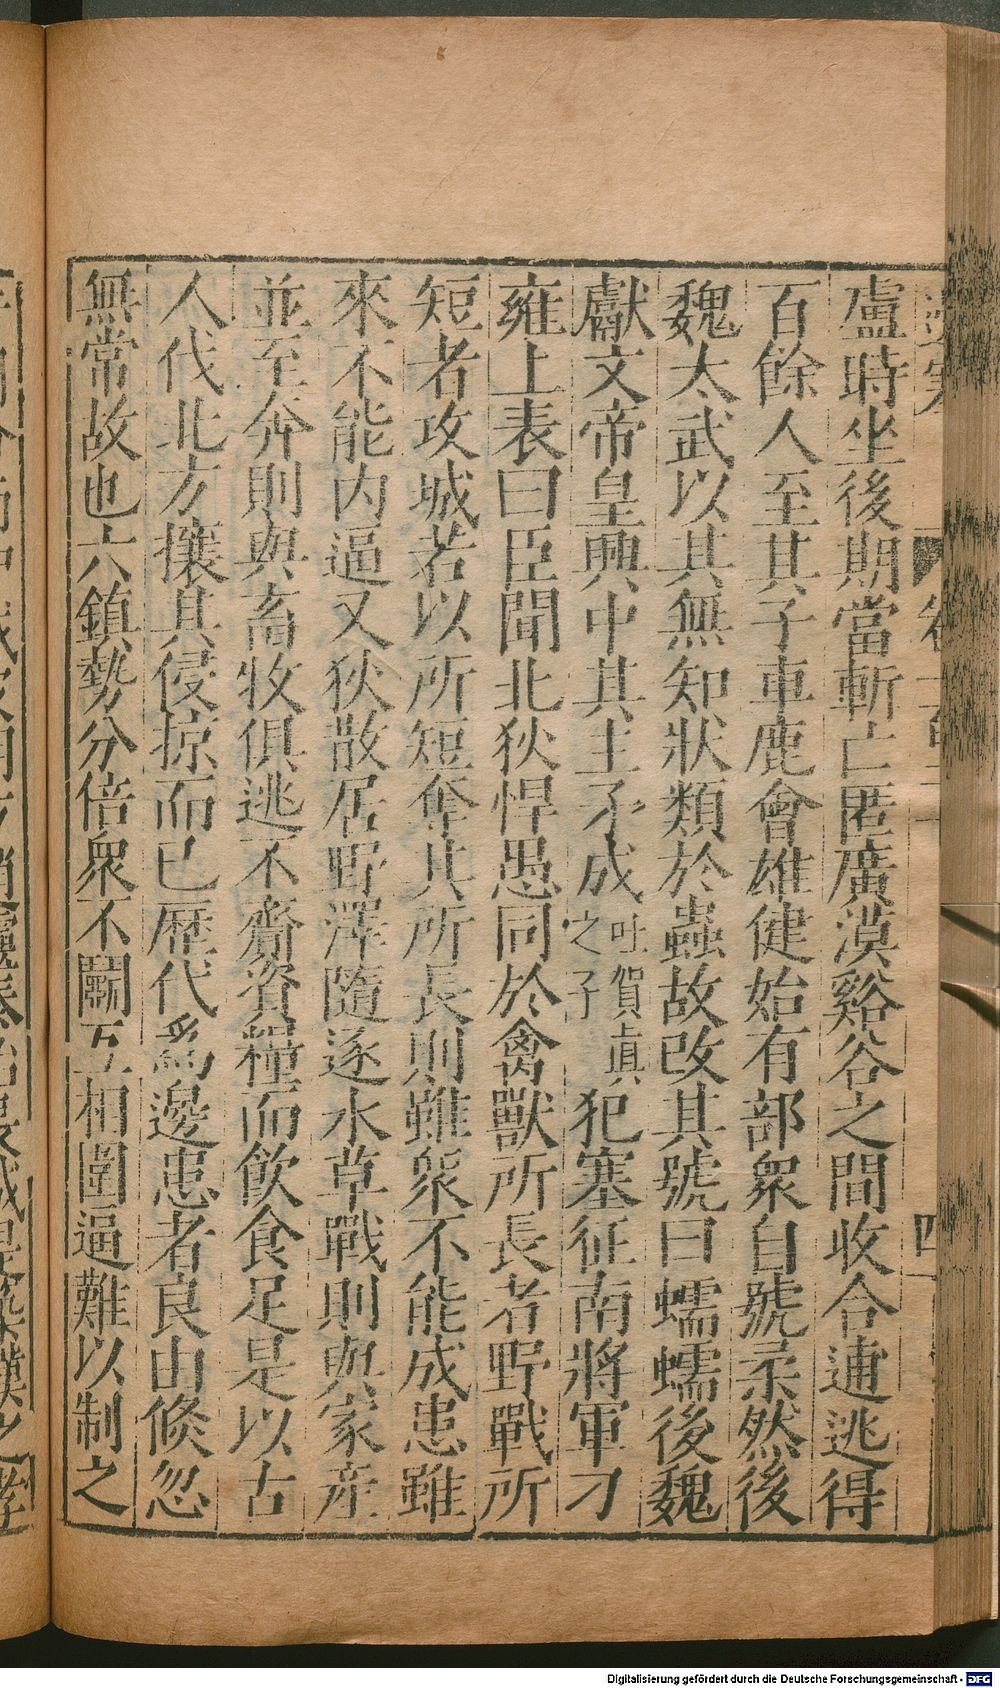 盧時坐後期當斬亡匿廣漠谿谷之間收合逋逃得
百餘人至其子車鹿會雄健始有部衆自號柔然後
魏太武以其無知狀類於蟲故改其號曰蠕蠕後魏
獻文帝皇興中其主予成吐賀眞之子犯塞征南將軍刁
雍上表曰臣聞北狄悍愚同於禽獸所長者野戰所
短者攻城若以所短奪其所長則雖衆不能成患雖
來不能內逼又狄散居野澤隨逐水草戰則與家産
並至奔則與畜牧俱逃不齎資糧而飲食足是以古
人伐北方攘其侵掠而已歷代爲邊患者良由倐忽
無常故也六鎮勢分倍衆不鬭互相圍逼難以制之
四
Digitalisierung gefördert durch die Deutsche Forschungsgemeinschaft - DFG